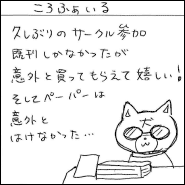 ころふぁいる
久しぶりのサークル参加
既刊しかなかったが
意外と買ってもらえて嬉しい!
そしてペーパーは
意外と
はけなかった…